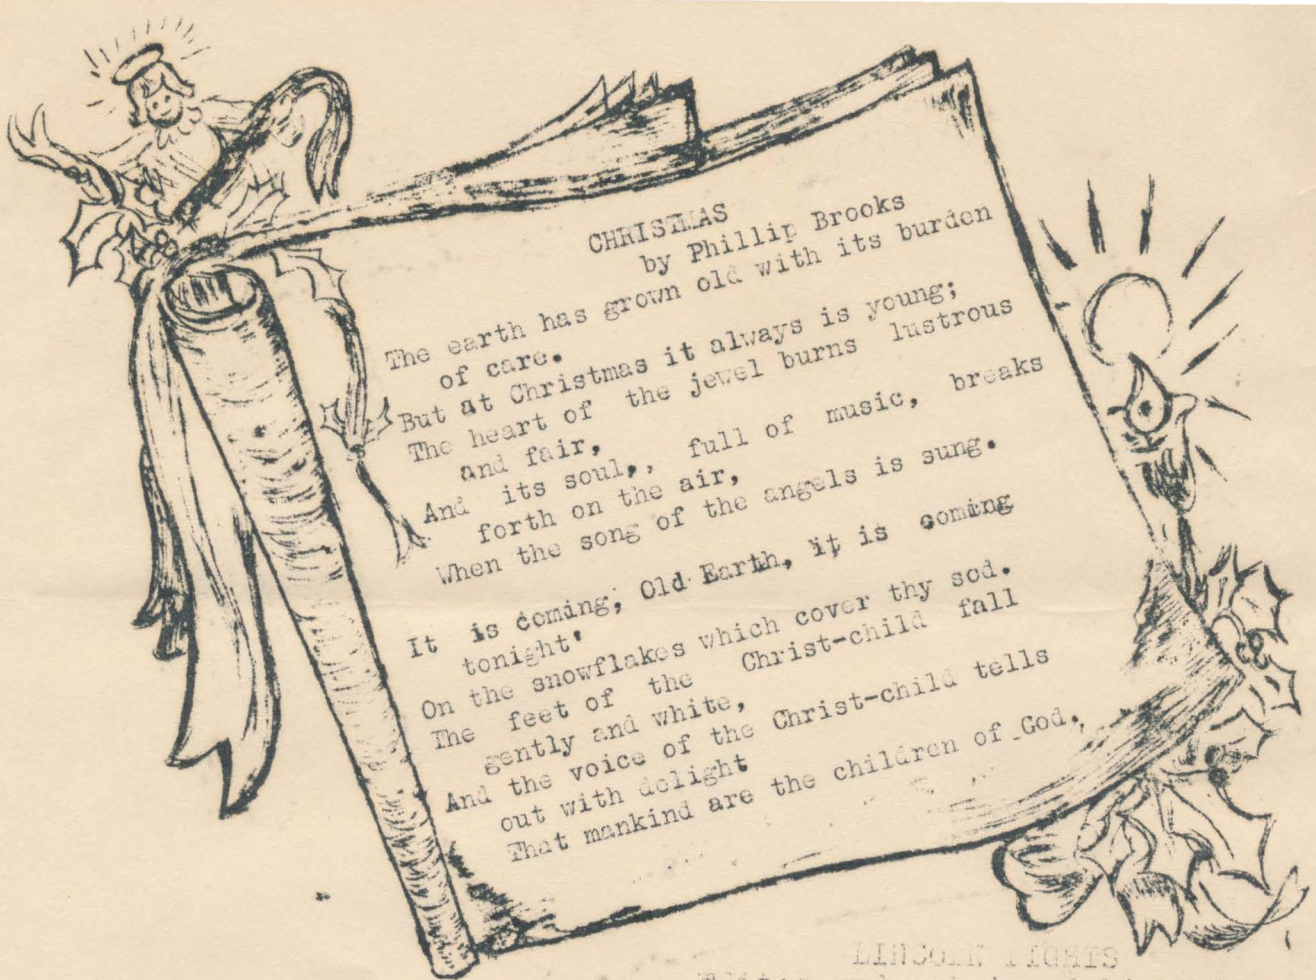 CHRISTMAS
by Phillip Brooks
The earth has grown old with its burden
of care.
But at Christmas it always is young;
The heart of the jewel burns lustrous
and fair,
And its soul,, full of music, breaks
forth on the air,
When the song of the angels is sung.
It is coming, Old Earth, it is coming
tonight'
On the snowflakes which cover thy sod.
The feet of the Christ-child fall
gently and white,
And the voice of the Christ-child tells
out with delight
That mankind are the children of God.
LINCOLN LIGHTS